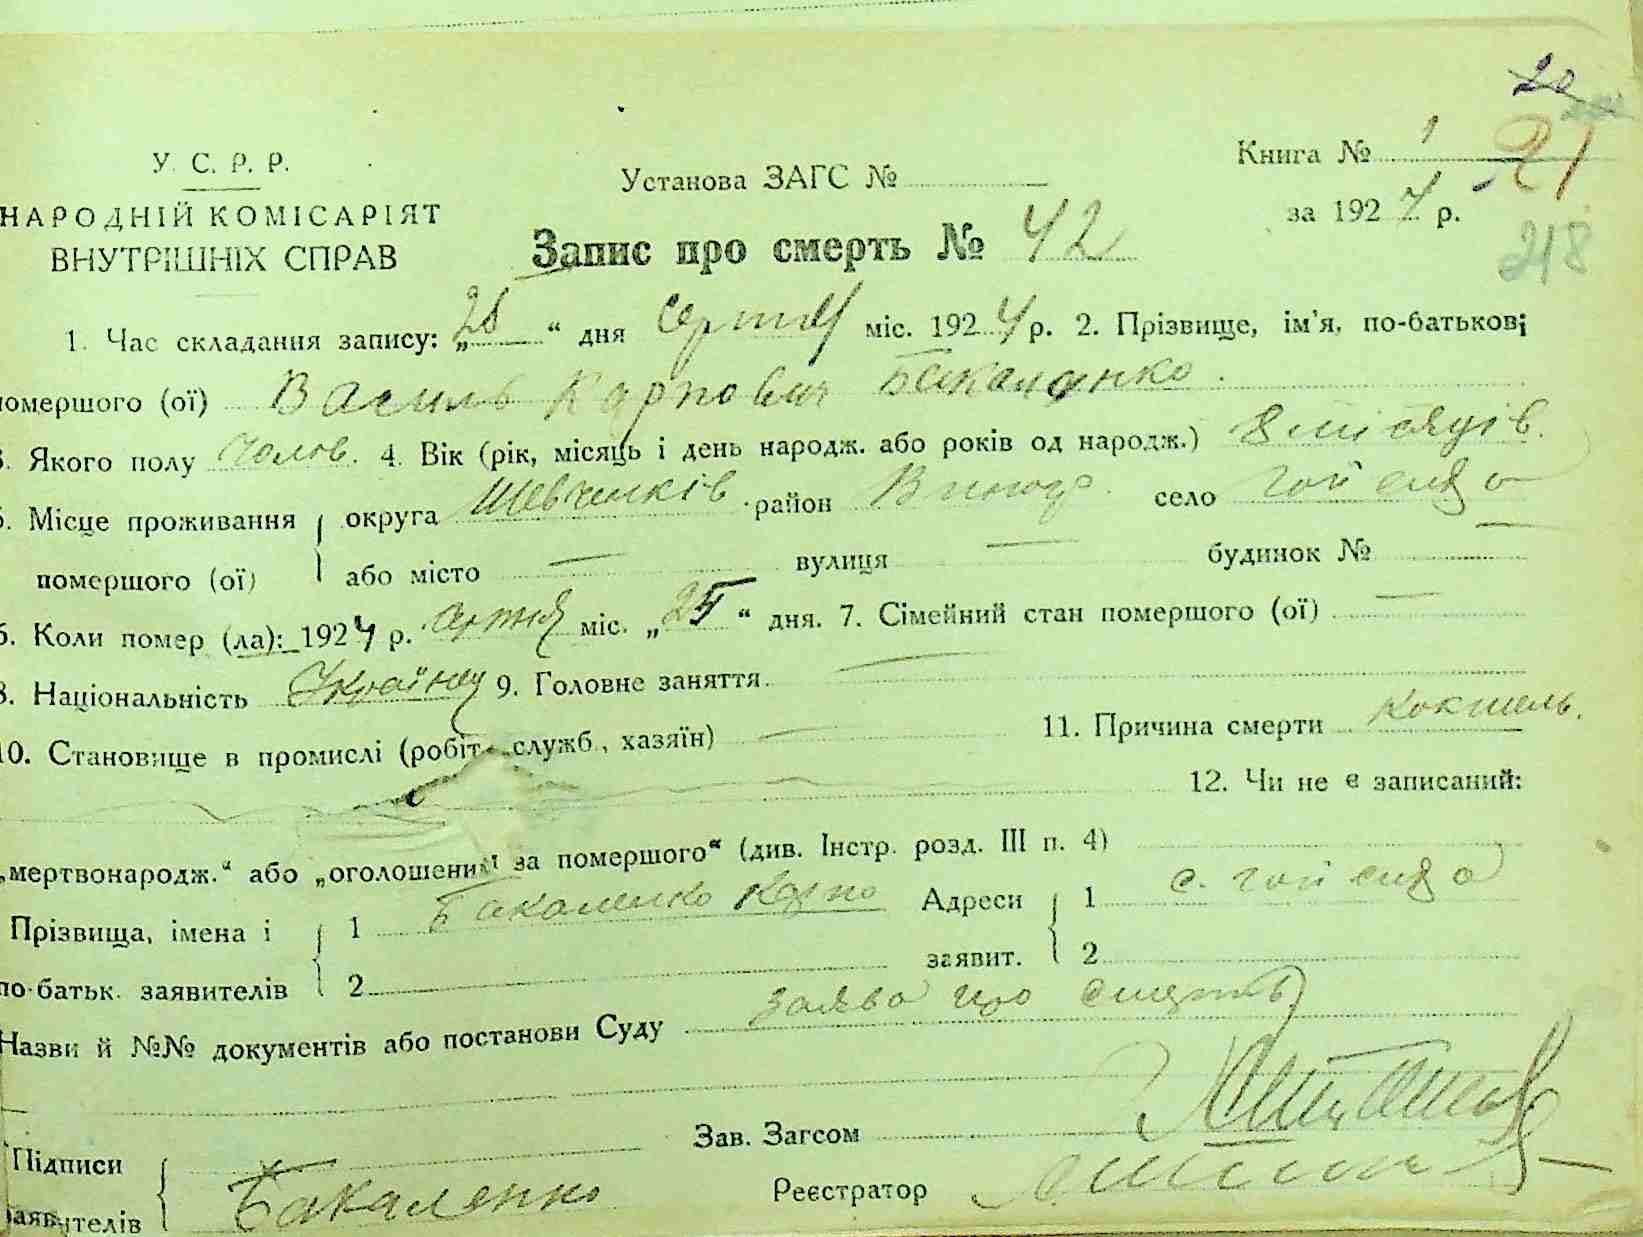 20
21
218
У. С. Р. Р.
НАРОДНІЙ КОМІСАРІЯТ
ВНУТРІШНІХ СПРАВ
Установа ЗАГС №
Книга № 1
за 1924 р.
Запис про смерть № 42
1. Час складання запису: „28“ дня серпня міс. 1924 р. 2. Прізвище, ім'я, по-батькові
помершого (ої) Василь Карпович Бакаленко
3. Якого полу чолов. 4. Вік (рік, місяць і день народж. або років од народж.) 8 місяців.
5. Місце проживання помершого (ої) округа Шевченків район село
або місто — вулиця — будинок № —
6. Коли помер (ла): 1924 р. серпня міс. „25“ дня. 7. Сімейний стан помершого (ої) —
8. Національність Українец 9. Головне заняття. —
10. Становище в промислі (робіт., служб., хазяїн) — 11. Причина смерти кокшель.
12. Чи не є записаний:
„мертвонародж.“ або „оголошеним за помершого“ (див. Інстр. розд. III п. 4)
Прізвища, імена і по-батьк. заявителів 1 Бакаленко Карпо Адреси заявит. 1 с.
2 2
Назви й №№ документів або постанови Суду заява про смерть
Зав. Загсом
Підписи заявителів Бакаленко Реєстратор